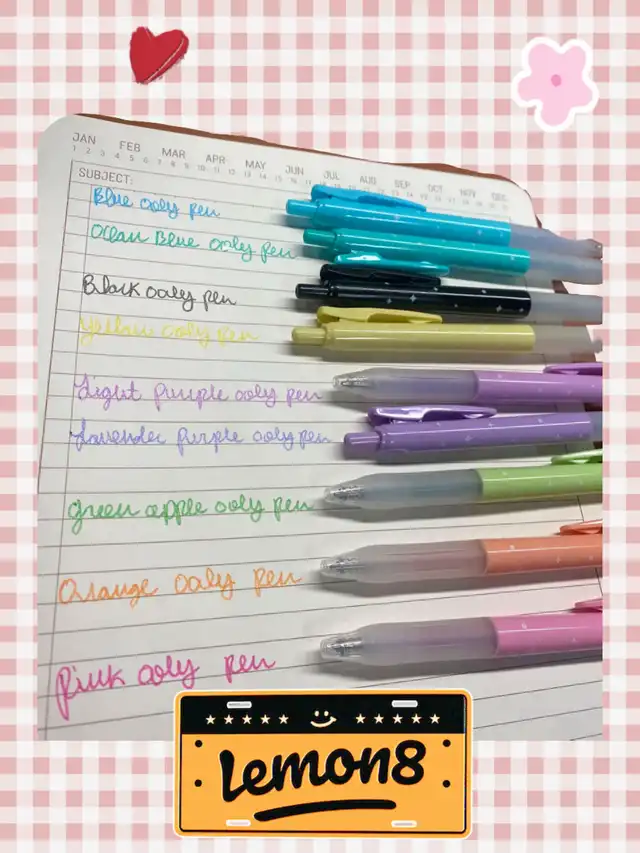 JAN FEB MAR APR MAY JUN JUL AUG SEP OCT NOV DEC
SUBJECT:
Blue ooly pen
Ocean Blue ooly pen
Black ooly pen
Yellow ooly pen
Light purple ooly pen
Lavender purple ooly pen
green apple ooly pen
Orange ooly pen
Pink ooly pen
Lemon8